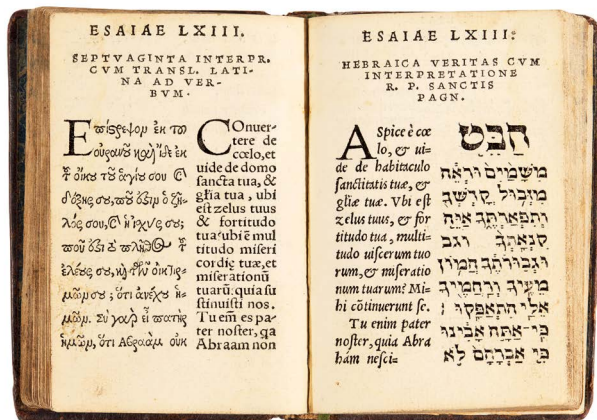 ESAIAE LXIII.
SEPTVAGINTA INTERPR.
CVM TRANSL. LATI-
NA AD VER-
BVM.
Ἐπίστρεψον ἐκ τοῦ
οὐρανοῦ καὶ ἴδε ἐκ
τοῦ οἴκου τοῦ ἁγίου σου
δόξης σου, ποῦ ὅστιν ὁ ζῆ-
λός σου, ἰσχύς σου,
ποῦ ὅστι πλῆθος
ἐλέους σου, καὶ τῶν οἰκτιρ-
μῶν σου; ὅτι ἀνέχου ἡ-
μῶν. Σὺ γὰρ εἶ πατὴρ
ἡμῶν, ὅτι Ἀβραὰμ οὐκ
COnuer-
tere de
cœlo, et
uide de domo
sancta tua, &
gl̃ia tua, ubi
est zelus tuus
& fortitudo
tua: ubi ẽ mul
titudo miseri
cordię tuæ, et
miserationũ
tuarũ: quia su
stinuisti nos.
Tu em̃ es pa-
ter noster, qa
Abraam non
ESAIAE LXIII.
HEBRAICA VERITAS CVM
INTERPRETATIONE
R. P. SANCTIS
PAGN.
ASpice è cœ
lo, & ui-
de de habitaculo
sanctitatis tuæ, &
gliæ tuæ. Vbi est
zelus tuus, & for
titudo tua, multi-
tudo uiscerum tuo
rum, & miseratio
num tuarum? Mi-
hi cõtinuerunt se.
Tu enim pater
noster, quia Abra
hám nesci-
הַבֵּט
מִשָּׁמַיִם וּרְאֵה
מִזְּבֻל קָדְשְׁךָ
וְתִפְאַרְתֶּךָ אַיֵּה
קִנְאָתְךָ וגב
וּגְבוּרֹתֶךָ הֲמוֹן
מֵעֶיךָ וְרַחֲמֶיךָ
אֵלַי הִתְאַפָּקוּ׃
כִּי־אַתָּה אָבִינוּ
כִּי אַבְרָהָם לֹא